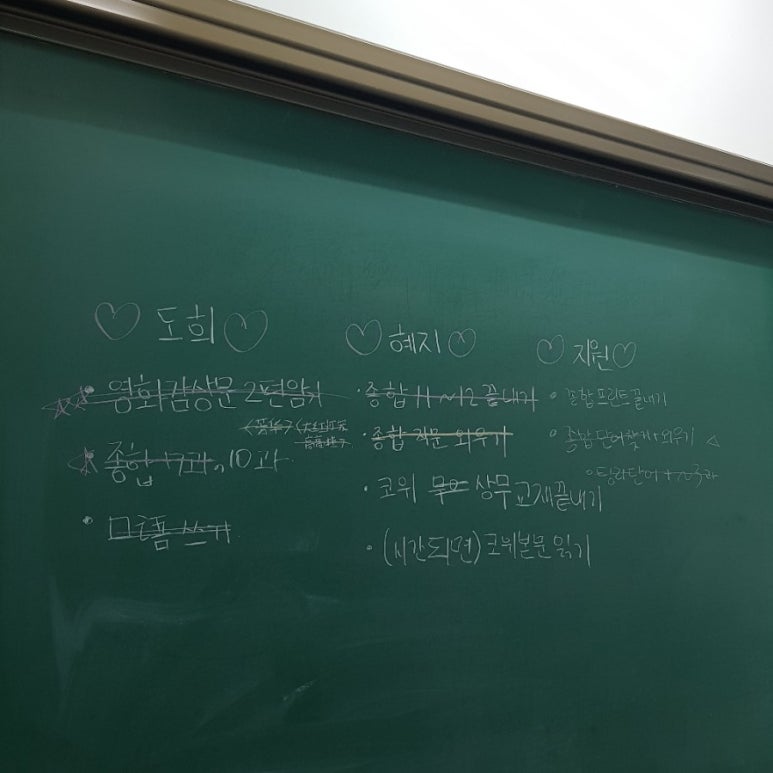 ♡ 도희 ♡
영화감상문 2편암기
종합 9과, 10과
口語 쓰기
♡ 혜지 ♡
종합 11~12 끝내기
종합 작문 외우기
코위 상무교재끝내기
(시간되면) 코위본문 읽기
♡ 지원 ♡
종합프린트끝내기
종합 단어찾기+외우기